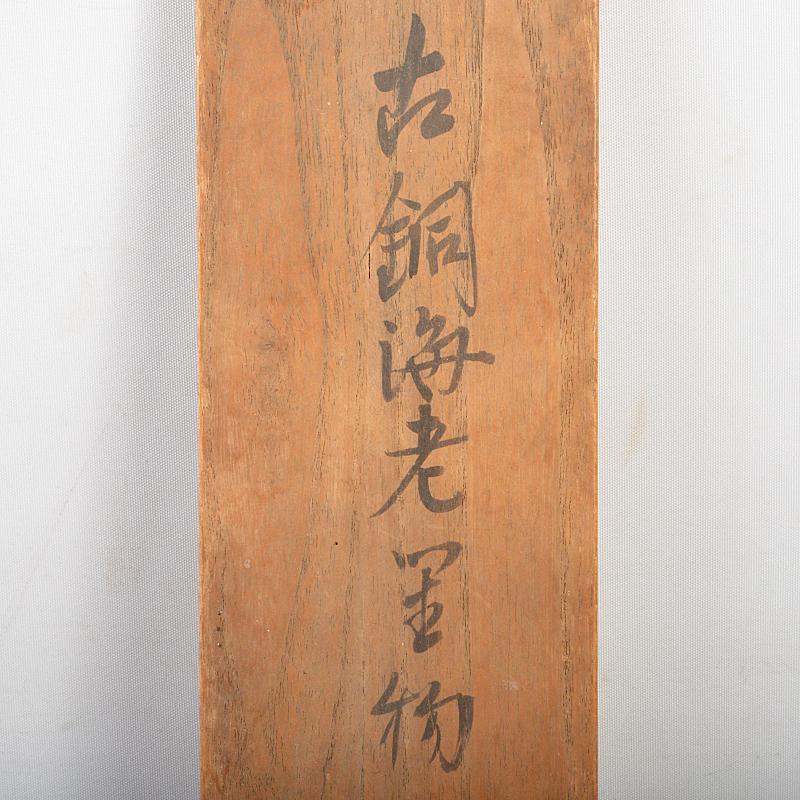 古銅海老置物